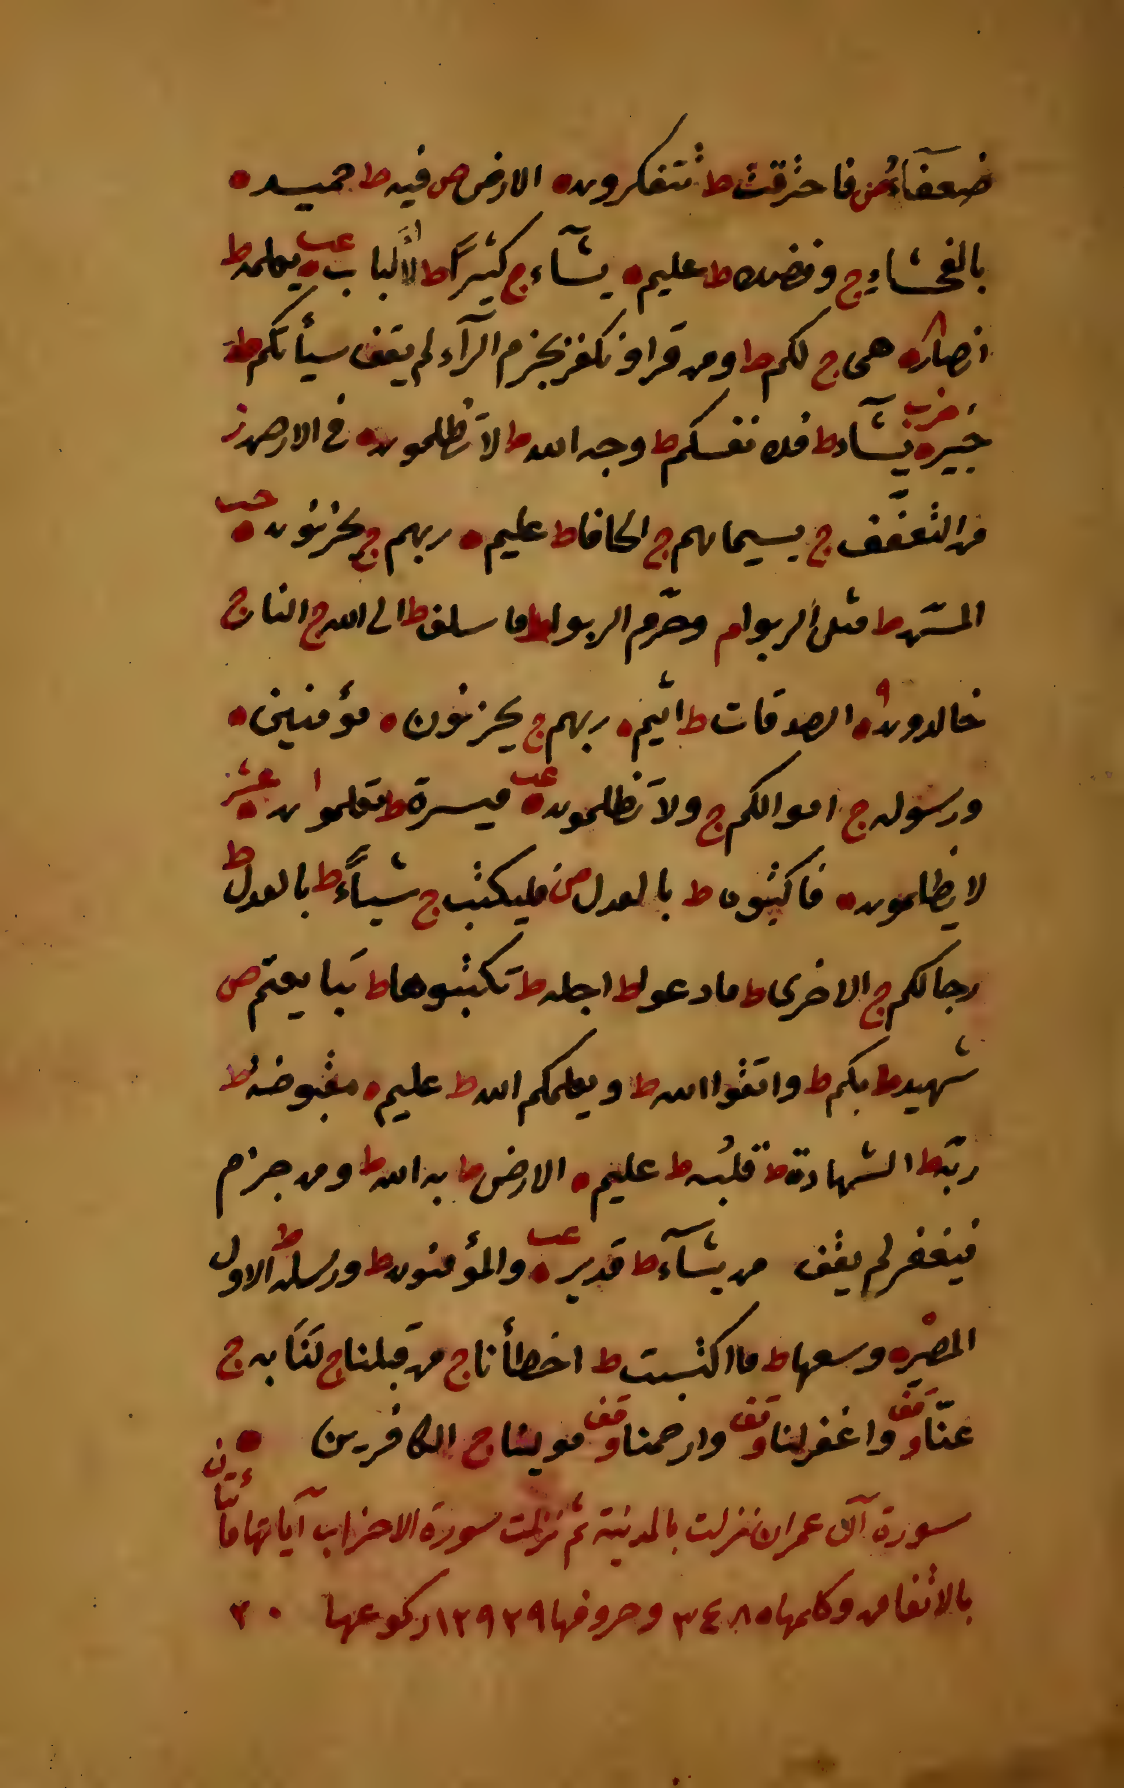 ضعفآء ص فاحترقت ط تتفكرون ه الارض ص فيه ط حميد ه
بالفحشاء ج وفضلا ط عليم ه يشآء ج كثيرًا ط الألباب ه عب يعلمه ط
انصار ه هى ج لكم ط ومن قرا ونكفر بجزم الرآء لم يقف سيأتكم ط
خبير ه حزب يشآء ط فلانفسكم ط وجه الله ط لا تظلمون ه فى الارض ز
من التعفف ج بسيماهم ج الحافا ط عليم ه ربهم ج يحزنون ه حب
المسّ ط مثل الربوا م وحرّم الربوا ط ما سلف ط الى الله ج النار ج
خالدون ه الصدقات ط اثيم ه ربهم ج يحزنون ه مؤمنين ه
ورسوله ج اموالكم ج ولا تظلمون ه عب ميسرة ط تعلمون ه عشر
لا يظلمون ه فاكتبوه ط بالعدل ص فليكتب ج شيأً ط بالعدل ط
رجالكم ج الاخرى ط مادعوا ط اجله ط تكتبوها ط تبايعتم ص
شهيد ط بكم ط واتقوا الله ط ويعلمكم الله ط عليم ه مقبوضة ط
ربّه ط الشهادة ط قلبُه ط عليم ه الارض ط به الله ط ومن جزم
فيغفر لم يقف من يشآء ط قدير ه عب والمؤمنون ط ورسله ط الاول
المصير ه وسعها ط ما اكتسبت ط اخطأنا ج من قبلنا ج لنا به ج
عنّا وقف واغفرلنا وقف وارحمنا وقف مولينا ج الكافرين ه
سورة آل عمران نزلت بالمدينة ثم نزلت سورة الاحزاب آياتها مأتان
بالاتفاق وكلمها ٣٤٨٥ وحروفها ١٢٩٢٩ ركوعها ٢٠